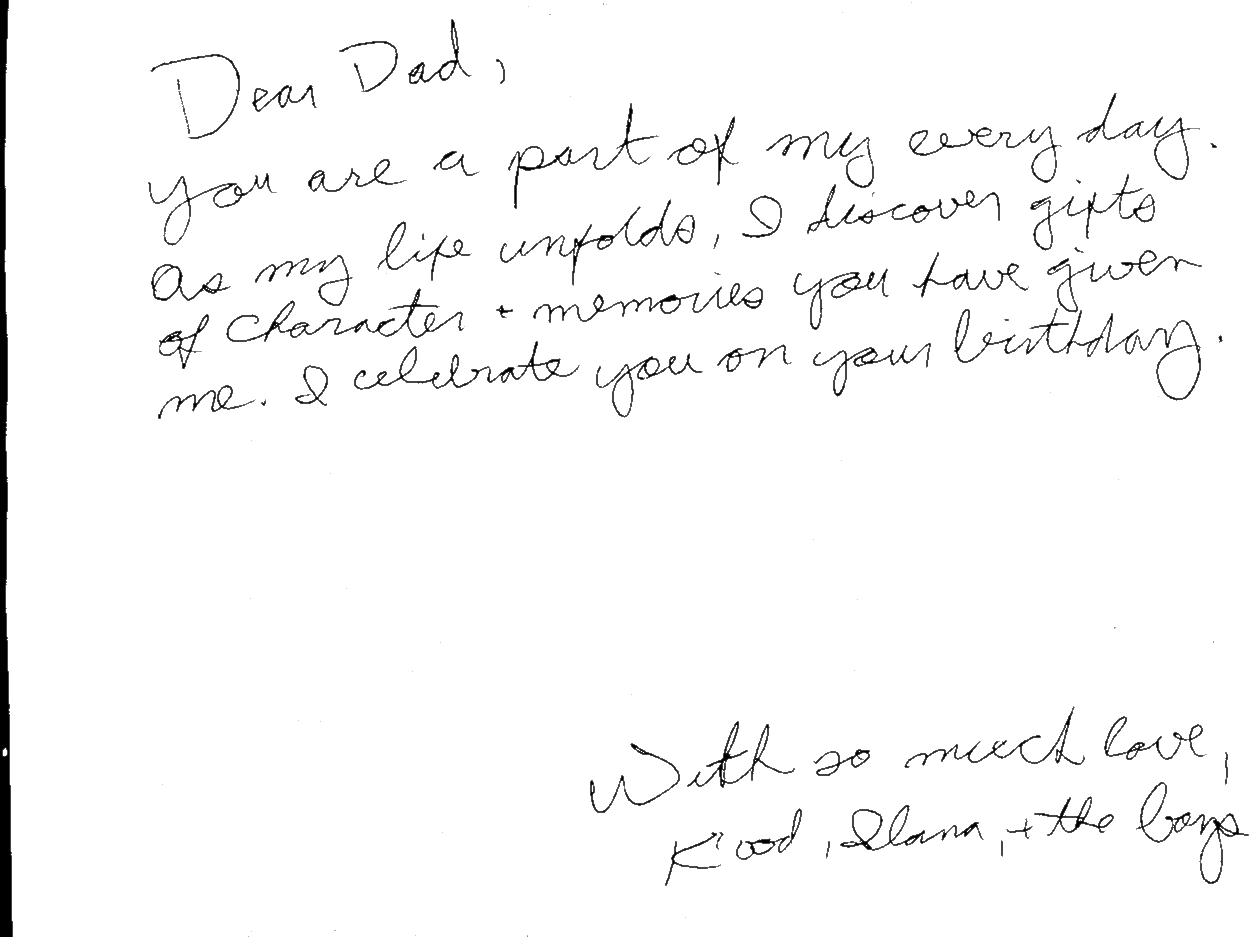 Dear Dad,
you are a part of my every day.
As my life unfolds, I discover gifts
of character + memories you have given
me. I celebrate you on your birthday.
With so much love,
Kood, Ilana, + the boys